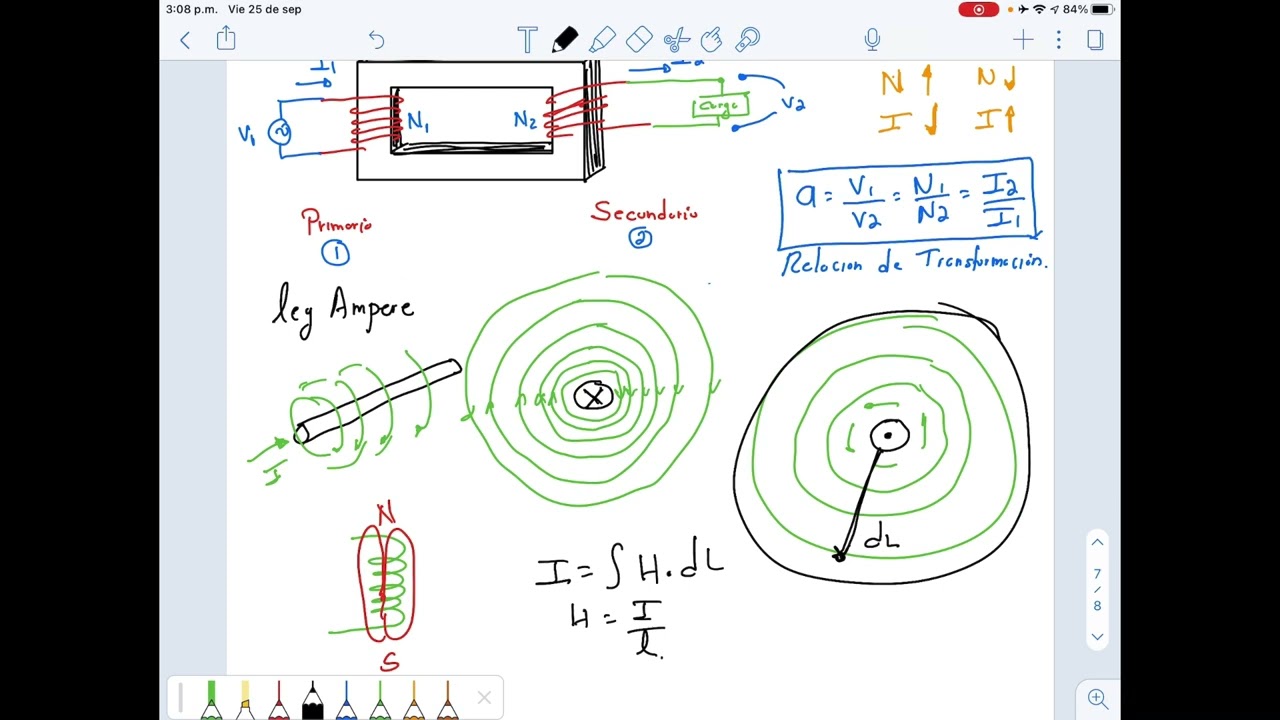 3:08 p.m. Vie 25 de sep
84%
T
I1
V1
N1
N2
Carga
V2
N ↑ N ↓
I ↓ I ↑
a = V1/V2 = N1/N2 = I2/I1
Relacion de Transformación.
Primario
1
Secundario
2
ley Ampere
I
X
dL
N
S
I = ∫ H · dL
H = I/l.
7
/
8